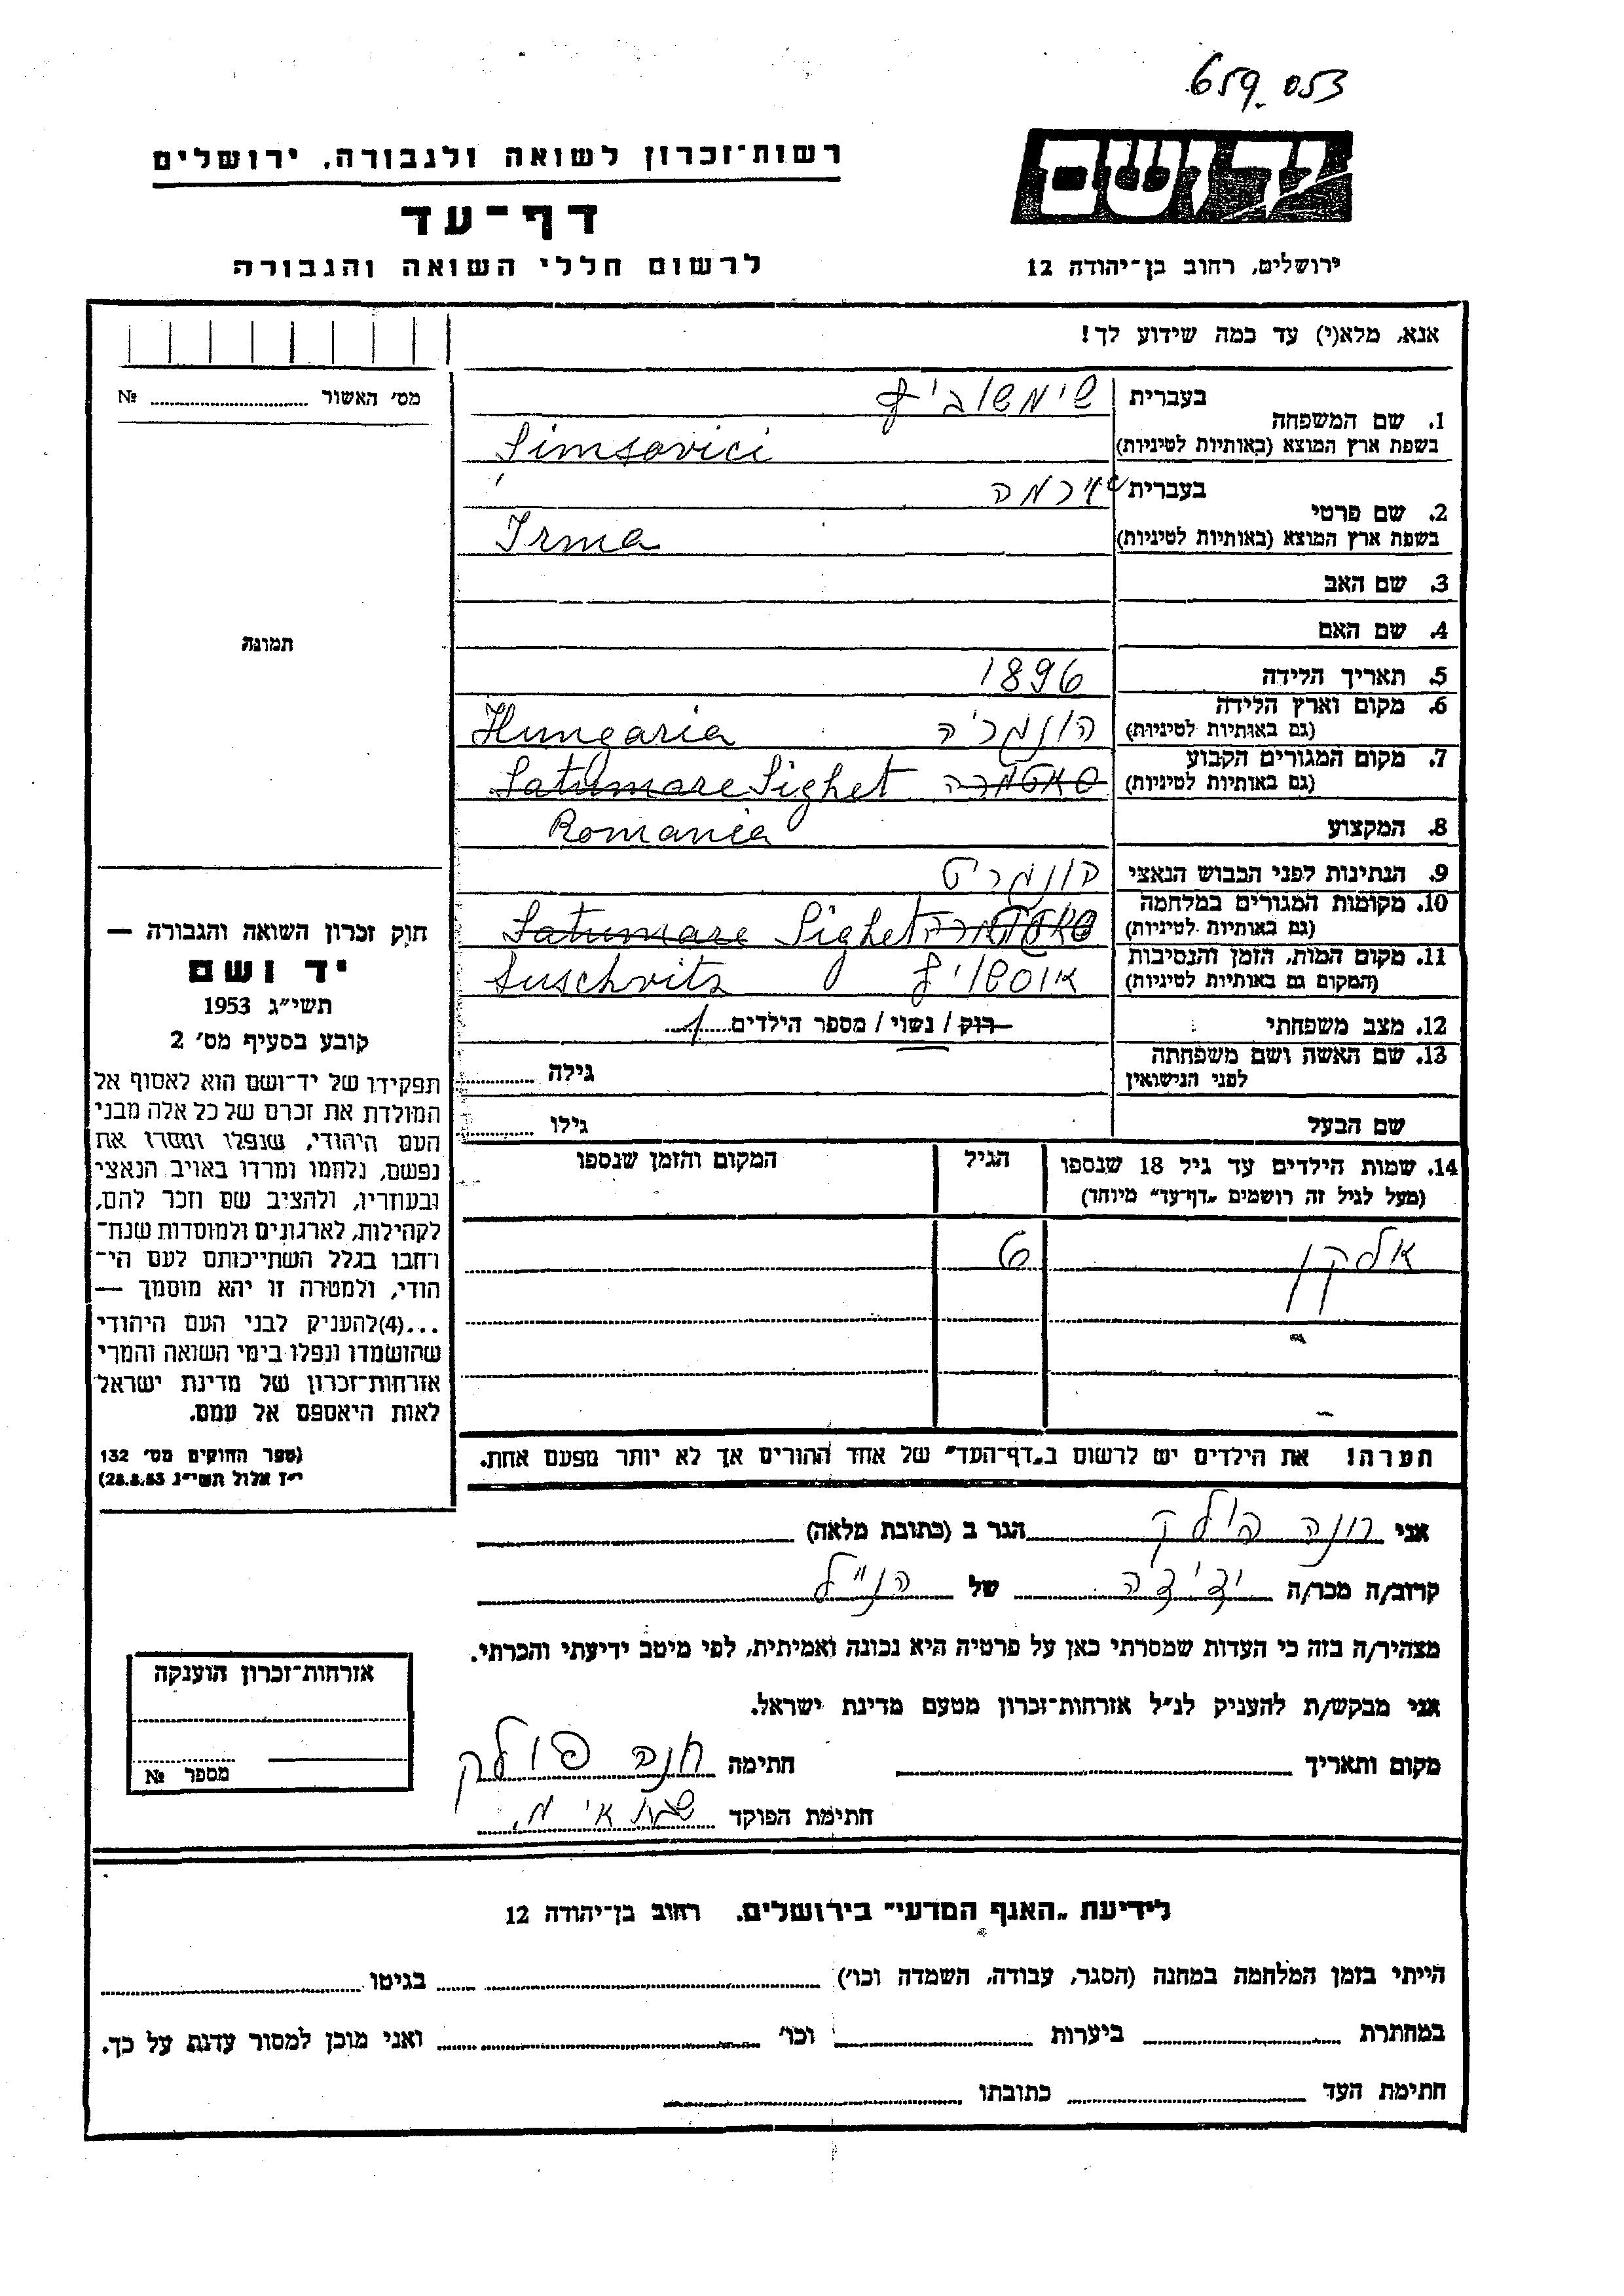 659.053
רשות-זכרון לשואה ולגבורה, ירושלים
דף-עד
לרשום חללי השואה והגבורה
יד ושם
ירושלים, רחוב בן-יהודה 12
אנא, מלא(י) עד כמה שידוע לך!
מס׳ האשור № 
1. שם המשפחה
בעברית שימשוביץ
בשפת ארץ המוצא (באותיות לטיניות) Şimsovici
2. שם פרטי
בעברית אירמה
בשפת ארץ המוצא (באותיות לטיניות) Irma
3. שם האב
4. שם האם
תמונה
5. תאריך הלידה 1896
6. מקום וארץ הלידה
(גם באותיות לטיניות) הונגריה Hungaria
7. מקום המגורים הקבוע
(גם באותיות לטיניות) סאטמרה Satumare Sighet
8. המקצוע Romania
9. הנתינות לפני הכבוש הנאצי הונגרית
10. מקומות המגורים במלחמה
(גם באותיות לטיניות) Satumare Sighet
11. מקום המות, הזמן והנסיבות
(המקום גם באותיות לטיניות) אוסשויץ Auschvitz
12. מצב משפחתי רוק / נשוי / מספר הילדים 1
13. שם האשה ושם משפחתה
לפני הנישואין גילה
שם הבעל גילו
14. שמות הילדים עד גיל 18 שנספו הגיל המקום והזמן שנספו
(מעל לגיל זה רושמים „דף-עד״ מיוחד)
אלקן 6
הערה! את הילדים יש לרשום ב„דף-העד״ של אחד ההורים אך לא יותר מפעם אחת.
חוק זכרון השואה והגבורה —
יד ושם
תשי״ג 1953
קובע בסעיף מס׳ 2
תפקידו של יד-ושם הוא לאסוף אל
המולדת את זכרם של כל אלה מבני
העם היהודי, שנפלו ומסרו את
נפשם, נלחמו ומרדו באויב הנאצי
ובעוזריו, ולהציב שם וזכר להם,
לקהילות, לארגונים ולמוסדות שנח-
רבו בגלל השתייכותם לעם הי-
הודי, ולמטרה זו יהא מוסמך —
...(4)להעניק לבני העם היהודי
שהושמדו ונפלו בימי השואה והמרי
אזרחות-זכרון של מדינת ישראל
לאות היאספם אל עמם.
(ספר החוקים מס׳ 132
י״ז אלול תשי״ג 28.8.53)
אני חנה פולק הגר ב (כתובת מלאה)
קרוב/ה מכר/ה ידידה של הנ״ל
מצהיר/ה בזה כי העדות שמסרתי כאן על פרטיה היא נכונה ואמיתית, לפי מיטב ידיעתי והכרתי.
אני מבקש/ת להעניק לנ״ל אזרחות-זכרון מטעם מדינת ישראל.
מקום ותאריך חתימה חנה פולק
חתימת הפוקד
אזרחות-זכרון הוענקה
מספר №
לידיעת „האגף המדעי״ בירושלים. רחוב בן-יהודה 12
הייתי בזמן המלחמה במחנה (הסגר, עבודה, השמדה וכו׳) בגיטו
במחתרת ביערות וכו׳ ואני מוכן למסור עדות על כך.
חתימת העד כתובתו